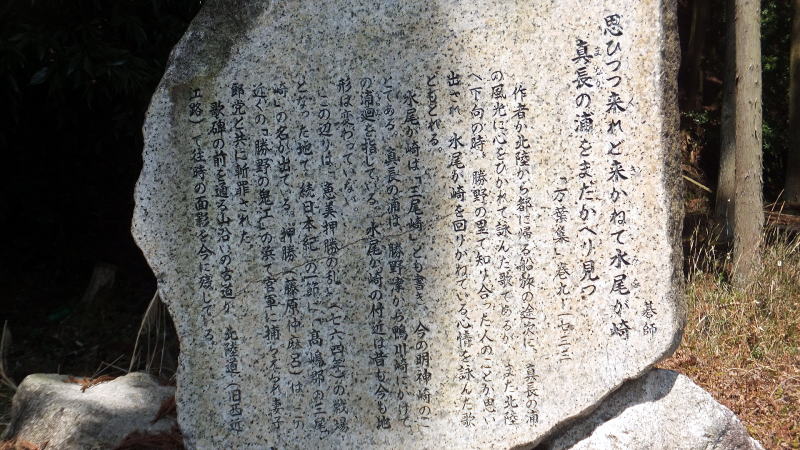 思ひつつ来れど来かねて水尾が崎
碁師
真長の浦をまたかへり見つ
「万葉集」巻九―一七三三
作者が北陸から都に帰る船旅の途次に、真長の浦
の風光に心をひかれて詠んた歌であるが、また北陸
へ下向の時、勝野の里で知り合った人のことが思い
出され、水尾が崎を回りかねている心情を詠んだ歌
ともとれる。
水尾が崎は「三尾崎」とも書き、今の明神崎のこ
とである。真長の浦は、勝野津から鴨川崎にかけて
の浦廻を指している。水尾が崎の付近は昔も今も地
形は変わっていない。
この辺りは、「恵美押勝の乱」(七六四年)の戦場
となった地で「続日本紀」の一節に「高嶋郡の三尾
崎」の名が出ている。押勝(藤原仲麻呂)は、この
近くの「勝野の鬼江」の浜で官軍に捕つえられ妻子
郎党と共に斬罪された。
歌碑の前を通る山沿いの古道が、北陸道(旧西近
江路)で往時の面影を今に残している。